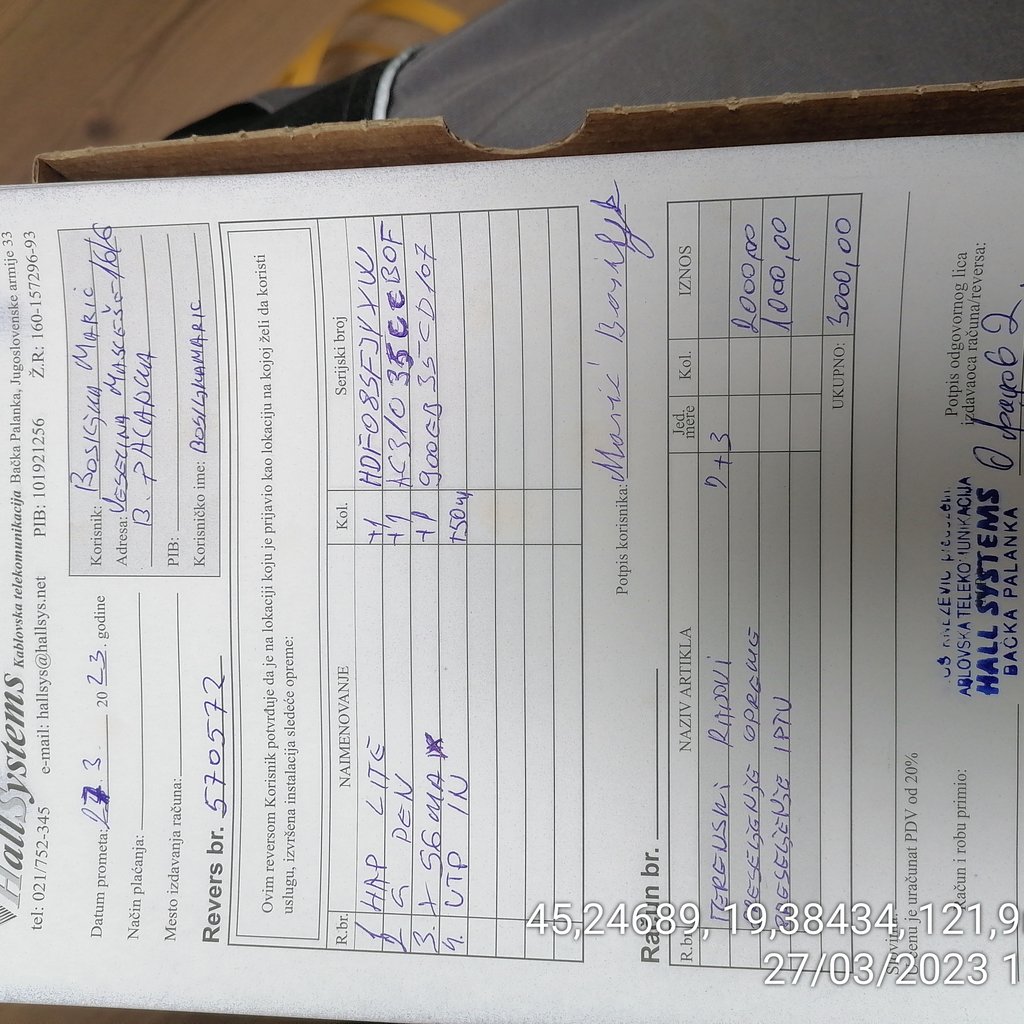 HallSystems Kablovska telekomunikacija Bačka Palanka, Jugoslovenske armije 33
tel: 021/752-345 e-mail: hallsys@hallsys.net PIB: 101921256 Ž.R: 160-157296-93
Datum prometa: 27 3 2023. godine
Način plaćanja:
Mesto izdavanja računa:
Korisnik: BOSILJKA MARIĆ
Adresa: VESELINA MASLEŠE 16/6
B. PALANKA
PIB:
Korisničko ime: BOSILJKAMARIC
Revers br. 570572
Ovim reversom Korisnik potvrđuje da je na lokaciji koju je prijavio kao lokaciju na kojoj želi da koristi
uslugu, izvršena instalacija sledeće opreme:
R.br. NAIMENOVANJE Kol. Serijski broj
1 HAP LITE +1 HDF085FJYXW
+1
3. +1
4. UTP IN +50m
Potpis korisnika: Marić Bosiljka
Račun br.
R.br. NAZIV ARTIKLA Jed. mere Kol. IZNOS
TERENSKI RADOVI 2+3
PRESELJENJE OPREME 2000,00
PRESELJENJE IPTV 1000,00
UKUPNO: 3000,00
Slovima:
U cenu je uračunat PDV od 20%
Račun i robu primio:
Potpis odgovornog lica
izdavaoca računa/reversa:
KNEZEVIĆ
ABLOVSKA TELEKOMUNIKACIJA
HALL SYSTEMS
BAČKA PALANKA
45,24689, 19,38434, 121,9
27/03/2023 1